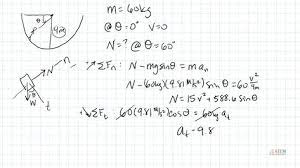 m = 60kg
@ θ = 0° V = 0
N = ? @ θ = 60°
θ
4m
N
n
θ
W
t
ΣFn: N - mg sin θ = m an
N - 60kg (9.81 m/s²) sin θ = 60 v²/4m
N = 15v² + 588.6 sin θ
ΣFt: 60 (9.81 m/s²) cos θ = 60kg at
at - 9.8